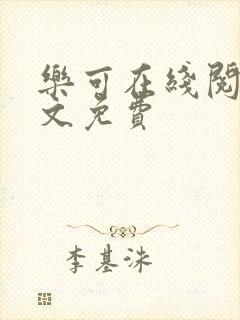 樂可在綫閱
文免費
李基洙